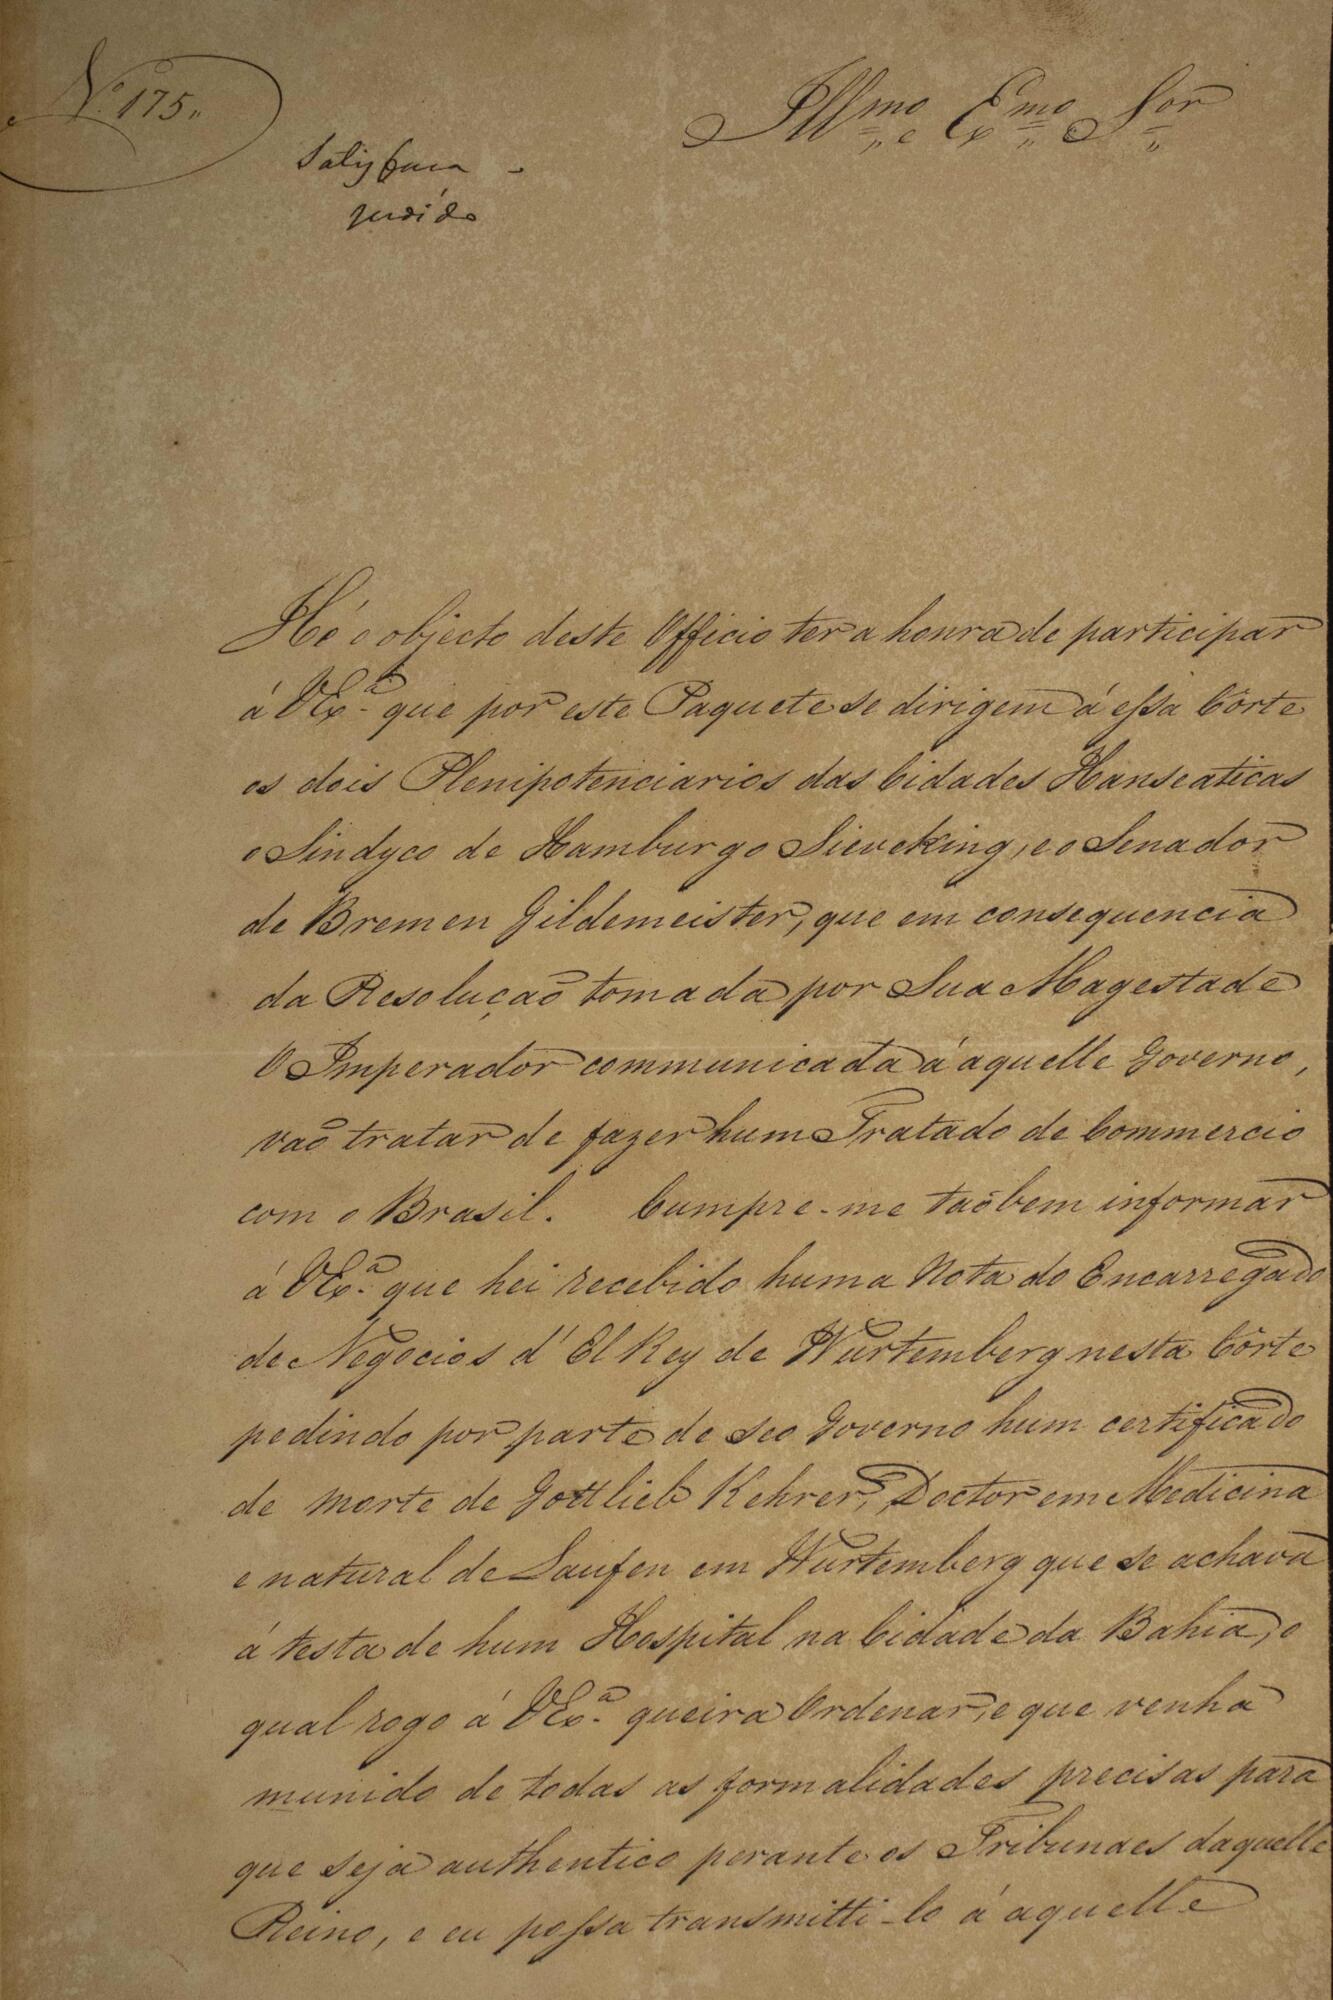 N.º 175,,
Illmo e Exmo Snr
Satisfaça
pedido
Hé o objecto deste Officio ter a honra de participar
á VExª que por este Paquete se dirigem á essa Côrte
os dois Plenipotenciarios das Cidades Hanseaticas
o Sindyco de Hamburgo Sieveking, e o Senador
de Bremen Gildemeister, que em consequencia
da Resolução tomada por Sua Magestade
O Imperador communicada á aquelle Governo,
vaõ tratar de fazer hum Tratado de Commercio
com o Brasil. Cumpre-me taõbem informar
á VExª que hei recebido huma Nota do Encarregado
de Negocios d'El Rey de Wurtemberg nesta Côrte
pedindo por parte de seo Governo hum certificado
de morte de Gottlieb Kehrer, Doctor em Medicina
e natural de Laufen em Wurtemberg que se achava
á testa de hum Hospital na Cidade da Bahia, o
qual rogo á VExª queira Ordenar, e que venha
munido de todas as formalidades precisas para
que seja authentico perante os Tribunaes daquelle
Reino, e eu possa transmitti-lo á aquelle